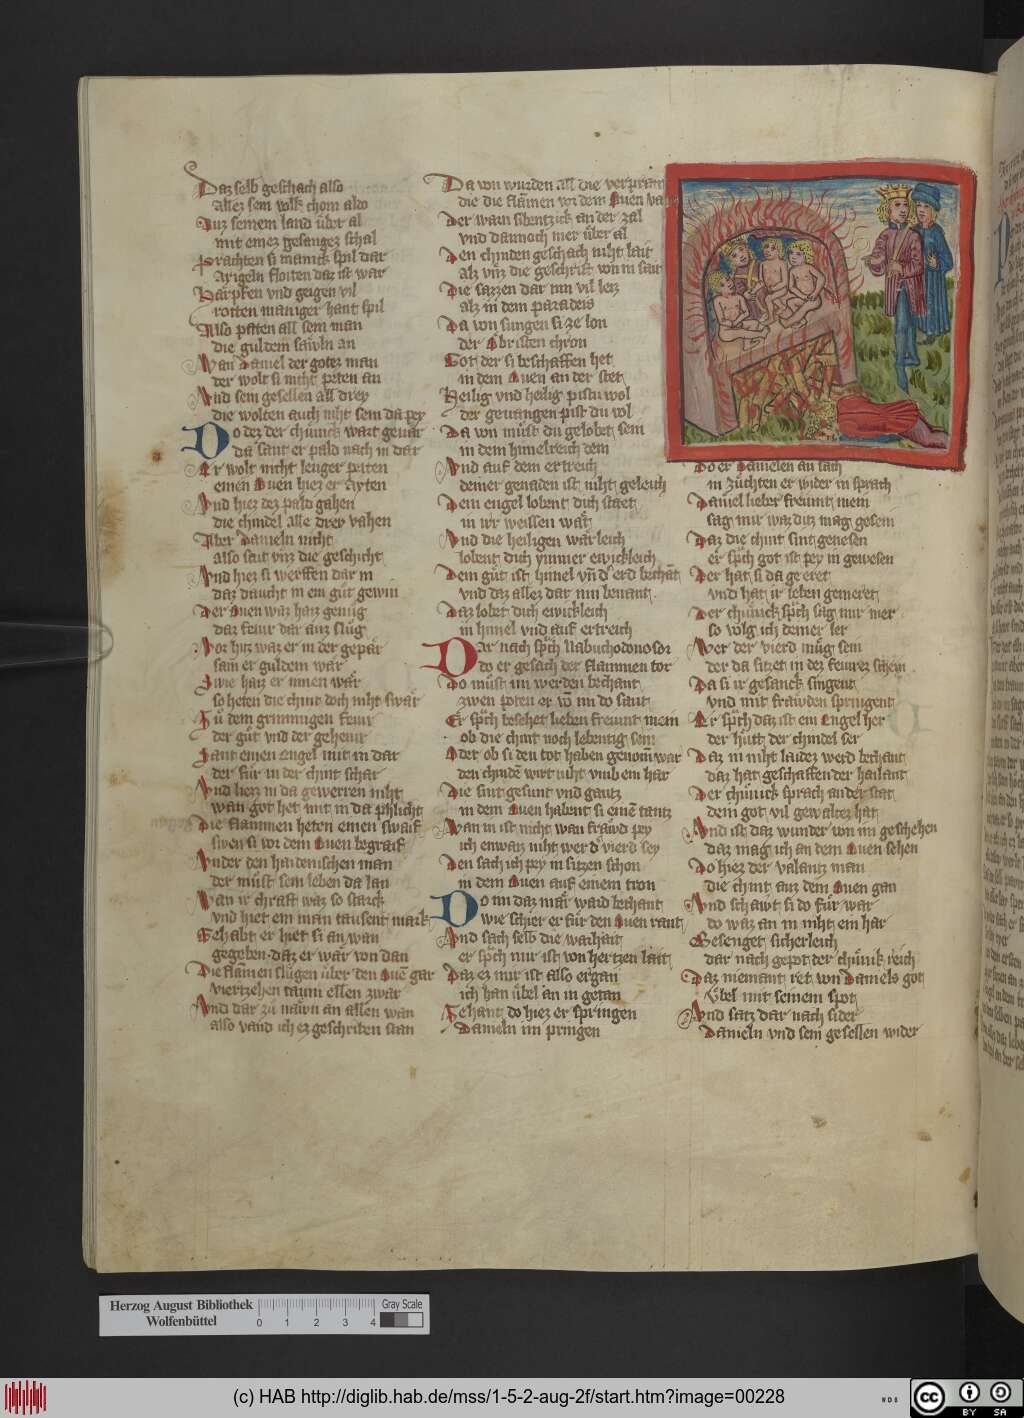 Daz selb geschach also
allez sein volk chom aldo
Auz seinem land über al
mit einez gesangez schal
Prachten si manick spil dar
Arigeln floiten daz ist war
Harpfen vnd geigen vil
rotten maniger hant spil
Also peten all sein man
die guldein sawln an
Wan Daniel der gotez man
der wolt si nicht peten an
Vnd sein gesellen all drey
die wolten auch niht sein da pey
Do dez der chünick wart gewar
da sant er pald nach in dar
Er wolt nicht lenger peiten
einen Ouen hiez er ayten
Vnd hiez dez pald gahen
die chindel alle drey vahen
Aber Danieln nicht
also sait vnz die geschicht
Vnd hiez si werffen dar in
daz daucht in ein gut gewin
Der Ouen waz haiz genüg
daz feiur dar auz slüg
Vor hitz waz er in der gepär
sam er guldein wär
Swie haiz er innen wär
so heten die chint doch niht swär
Fü dem grimmigen feiur
der güt vnd der geheiur
Sant einen engel mit in dar
der für in der chint schar
Vnd liezz in da gewerren niht
wan got het mit in da phlicht
Die flammen heten einen swaif
swen si vor dem Ouen begraif
Vnder den haidenischen man
der müst sein leben da lan
Wan ir chraft waz so starck
vnd hiet ein man tausent mark
Gehabt er hiet si an wan
gegeben daz er wär von dan
Die flamen slügen über den Ouē gar
viertzehen taum ellen zwar
Vnd dar zü nawn an allen wan
also vand ich ez geschriben stan
Da von wurden all die verprant
die die flamen vor dem Ouen vant
Der warn sibentzick an der zal
vnd dannoch mer über al
Den chinden geschach niht lait
alz vnz die geschrift von in sait
Die sazzen dar inn vil leiz
alz in dem paradeis
Da von sungen si ze lon
der Christen chron
Got der si beschaffen het
in dem Ouen an der stet
Heilig vnd heilig pistu wol
der gevangen pist du vol
Da von müst du gelobet sein
in dem himelreich dein
Vnd auf dem ertreich
deiner genaden ist niht geleich
Dein engel lobent dich staet
in irr weissen wat
Vnd die heiligen wärleich
lobent dich ymmer ewickleich
Dem güt ist himel vn̄ d' erd bechāt
vnd daz allez dar inn benant
Daz lobet dich ewickleich
in himel vnd auf ertreich
Dar nach sp̄ch Nabuchodonosor
do er gesach der flammen tor
Do müst im werden bechant
zwen poten er vō im do sant
Er sp̄ch besehet lieben freunt mein
ob die chint noch lebentig sein
Oder ob si den tot haben genom̄ war
den chindē wirt niht vmb ein har
Die sint gesunt vnd gantz
in dem Ouen habent si einē tantz
Wan in ist nicht wan fräwd pey
ich enwaiz niht wer d' vierd sey
Den sach ich pey in sitzen schon
in dem Ouen auf einem tron
Do im daz mär ward bechant
wie schier er für den Ouen rant
Vnd sach selb die warhait
er sp̄ch mir ist von hertzen lait
Daz ez mir ist also ergan
ich han übel an in getan
Zehant do hiez er springen
Danieln im pringen
Do er Danielen an sach
in züchten er wider in sprach
Daniel lieber freunt mein
sag mir waz ditz mag gesein
Daz die chint sint genesen
er sp̄ch got ist pey in gewesen
Der hat si da ge eret
vnd hat ir leben gemeret
Der chünick sp̄ch sag mir mer
so volg ich deiner ler
Wer der vierd müg sein
der da sitzet in dez feurez schein
Da si ir gesanck singent
vnd mit frawden springent
Er sp̄ch daz ist ein Engel her
der hütt der chindel ser
Daz in niht laidez werd bechant
daz hat geschaffen der hailant
Der chünick sprach an der stat
dein got vil gewaltez hat
Vnd ist daz wunder von im geschehen
daz mag ich an dem Ouen sehen
Do hiez der valantz man
die chint auz dem Ouen gan
Vnd schawt si do für war
do waz an in niht ein har
Gesenget sicherleich
dar nach gepot der chünik reich
Daz niemant tet von Daniels got
übel mit seinem spot
Vnd satz dar nach sider
Danieln vnd sein gesellen wider
Herzog August Bibliothek
Wolfenbüttel
0 1 2 3 4
Gray Scale
(c) HAB http://diglib.hab.de/mss/1-5-2-aug-2f/start.htm?image=00228
WDB
CC BY SA